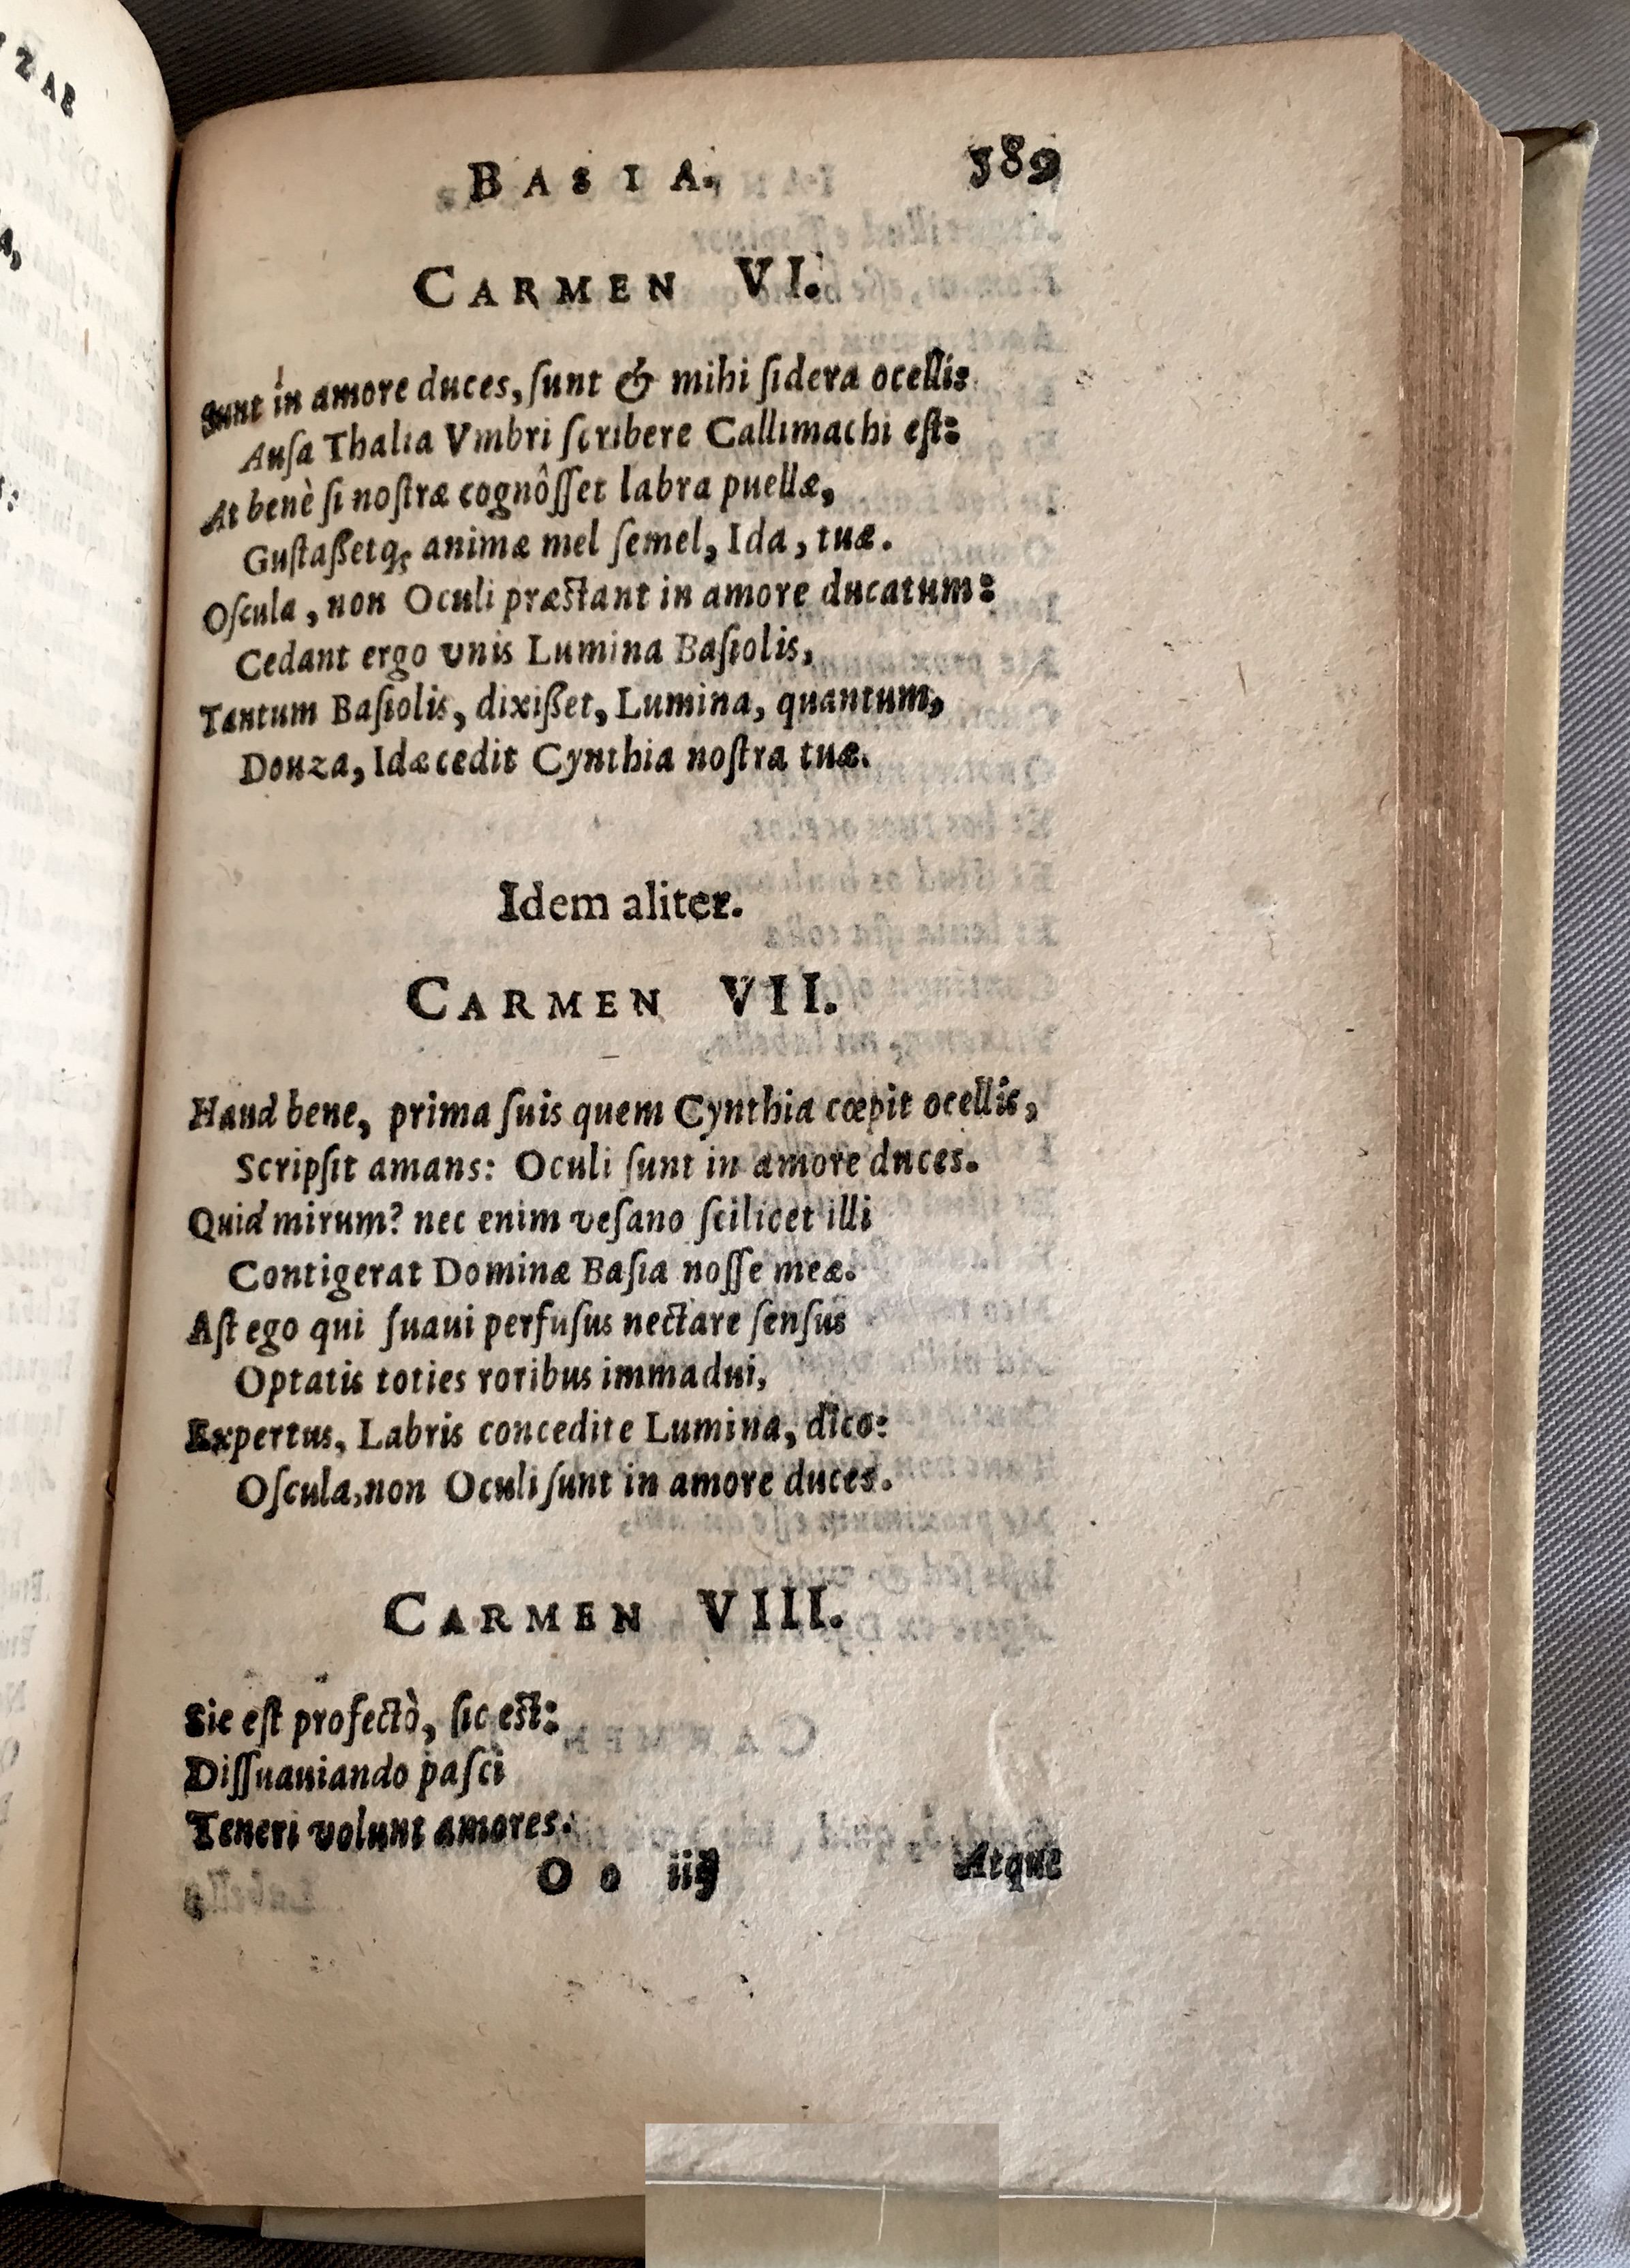 BASIA. 589
CARMEN VI.
Sunt in amore duces, ſunt & mihi ſidera ocellis
Auſa Thalia Vmbri ſcribere Callimachi eſt:
At benè ſi noſtræ cognôſſet labra puellæ,
Guſtaßetq; animæ mel ſemel, Ida, tuæ.
Oſcula, non Oculi præſtant in amore ducatum:
Cedant ergo vnis Lumina Baſiolis,
Tantum Baſiolis, dixißet, Lumina, quantum,
Douza, Idæ cedit Cynthia noſtra tuæ.
Idem aliter.
CARMEN VII.
Haud bene, prima ſuis quem Cynthia cœpit ocellis,
Scripſit amans: Oculi ſunt in amore duces.
Quid mirum? nec enim veſano ſcilicet illi
Contigerat Dominæ Baſia noſſe meæ.
Aſt ego qui ſuaui perfuſus nectare ſenſus
Optatis toties roribus immadui,
Expertus, Labris concedite Lumina, dico:
Oſcula, non Oculi ſunt in amore duces.
CARMEN VIII.
Sic eſt profectò, ſic eſt:
Diſſuauiando paſci
Teneri volunt amores.
Oo iij Atque